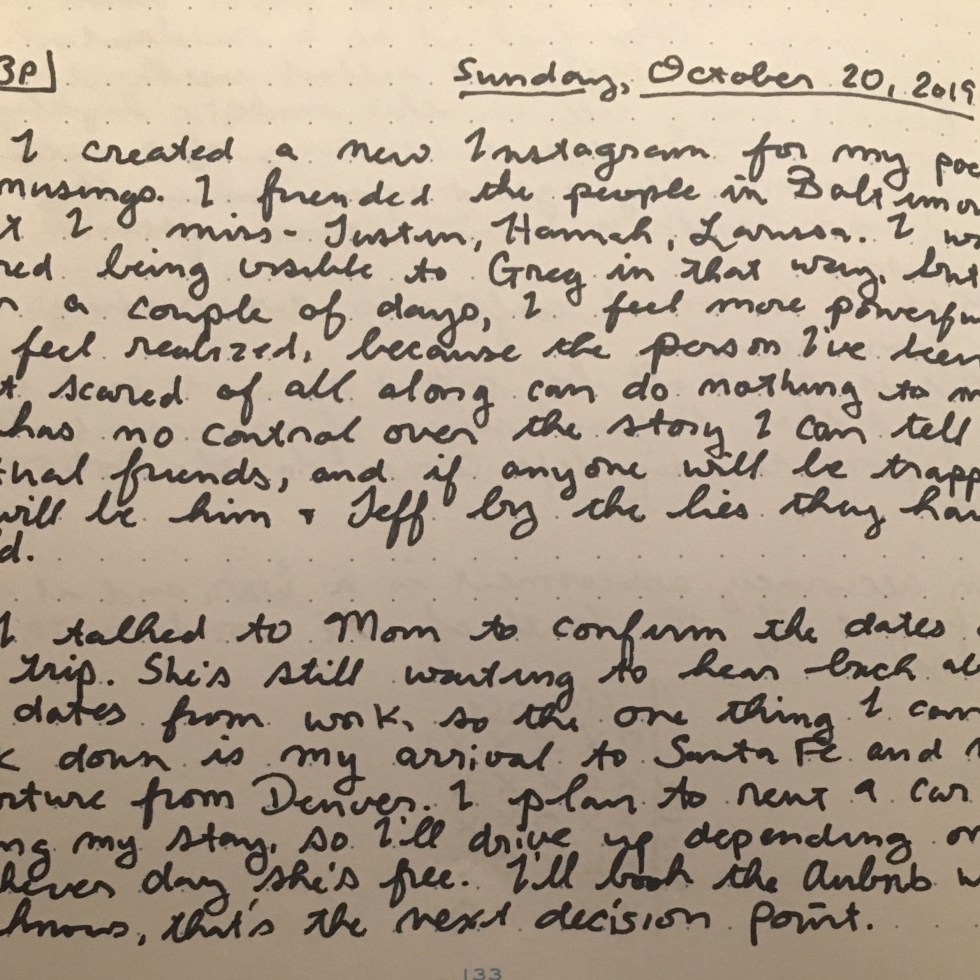 3P] Sunday, October 20, 2019
I created a new Instagram for my poe
musings. I friended the people in Baltimor
t I miss - Justin, Hannah, Larissa. I wa
red being visible to Greg in that way, but
r a couple of days, I feel more powerfu
feel realized, because the person I've been
t scared of all along can do nothing to m
has no control over the story I can tell
tual friends, and if anyone will be trapp
will be him + Jeff by the lies they hav
d.
I talked to Mom to confirm the dates
trip. She's still waiting to hear back ab
dates from work, so the one thing I can
k down is my arrival to Santa Fe and
rture from Denver. I plan to rent a car
ng my stay, so I'll drive up depending on
hever day she's free. I'll book the Airbnb w
knows, that's the next decision point.
133